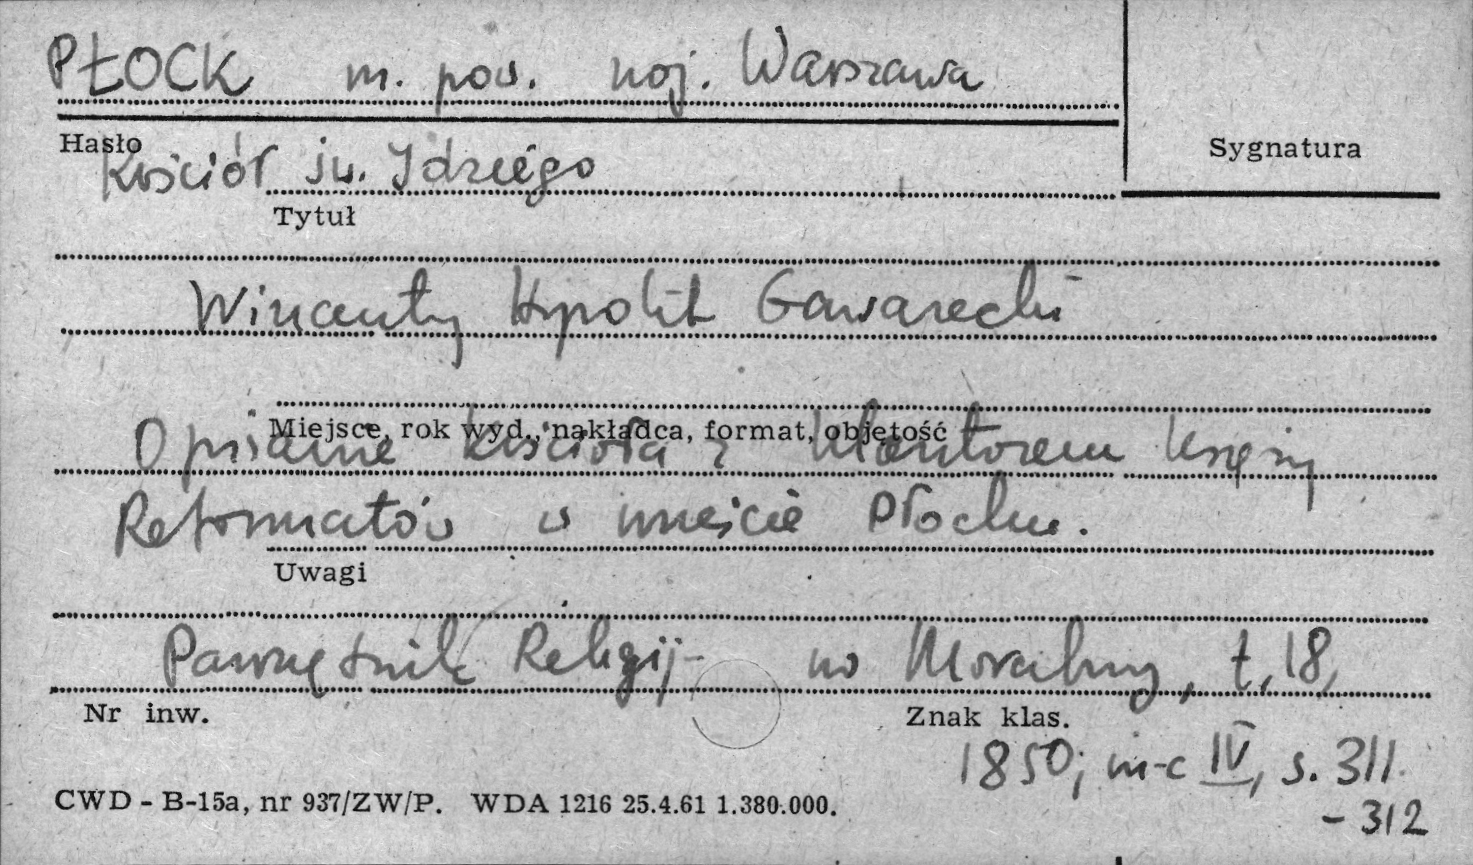 PŁOCK m. pow. woj. Warszawa
Hasło
Sygnatura
Kościół św. Idziego
Tytuł
Wincenty Hipolit Gawarecki
Miejsce, rok wyd., nakładca, format, objętość
Opisanie kościoła z klasztorem księży
Reformatów w mieście Płocku.
Uwagi
Pamiętnik Religij- no Moralny, t. 18,
Nr inw.
Znak klas.
1850; m-c IV, s. 311
- 312
CWD - B-15a, nr 937/ZW/P. WDA 1216 25.4.61 1.380.000.